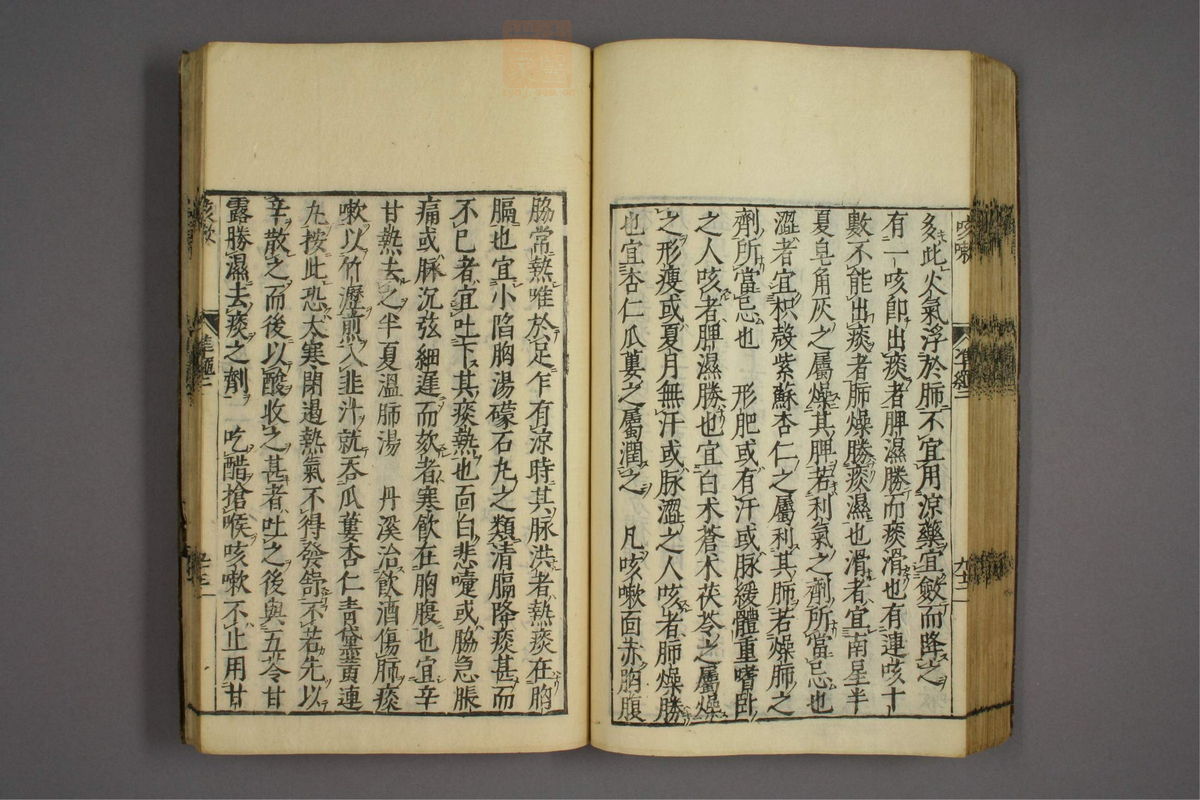 多此火氣浮於肺不宜用涼藥宜斂而降之
有一咳卽出痰者脾濕勝而痰滑也有連咳十
數不能出痰者肺燥勝痰濕也滑者宜南星半
夏皂角灰之屬燥其脾若利氣之劑所當忌也
澁者宜枳殻紫蘇杏仁之屬利其肺若燥肺之
劑所當忌也　形肥或有汗或脉緩體重嗜臥
之人咳者脾濕勝也宜白术蒼术茯苓之屬燥
之形瘦或夏月無汗或脉澁之人咳者肺燥勝
也宜杏仁瓜蔞之屬潤之　凡咳嗽面赤胸腹
脇常熱唯於足乍有涼時其脉洪者熱痰在胸
膈也宜小陷胸湯礞石丸之類清膈降痰甚而
不已者宜吐下其痰熱也面白悲嚏或脇急脹
痛或脉沉弦細遲而欬者寒飲在胸腹也宜辛
甘熱去之半夏溫肺湯　丹溪治飲酒傷肺痰
嗽以竹瀝煎入韭汁就吞瓜蔞杏仁青黛黃連
丸按此恐大寒閉遏熱氣不得發䓖不若先以
辛散之而後以酸收之甚者吐之後與五苓甘
露勝濕去痰之劑　吃醋搶喉咳嗽不止用甘
咳嗽
咳嗽
準繩二